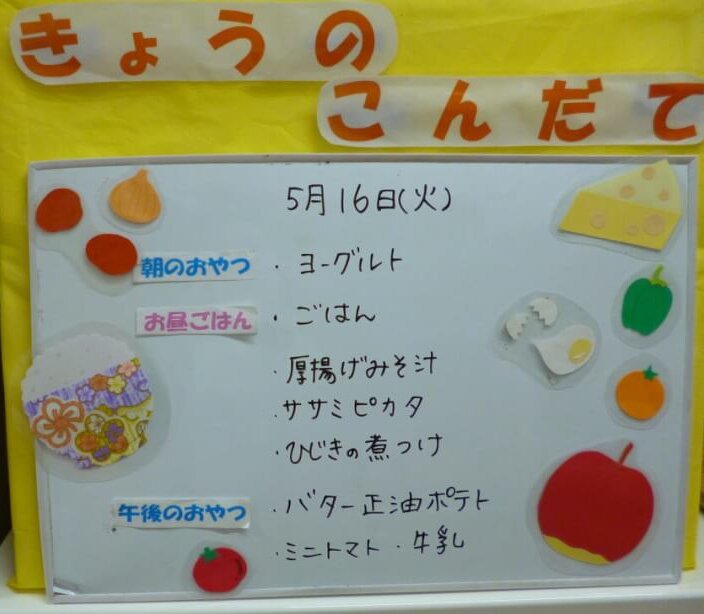 きょうの
こんだて
5月16日(火)
朝のおやつ ・ヨーグルト
お昼ごはん ・ごはん
・厚揚げみそ汁
・ササミピカタ
・ひじきの煮つけ
午後のおやつ ・バター正油ポテト
・ミニトマト・牛乳